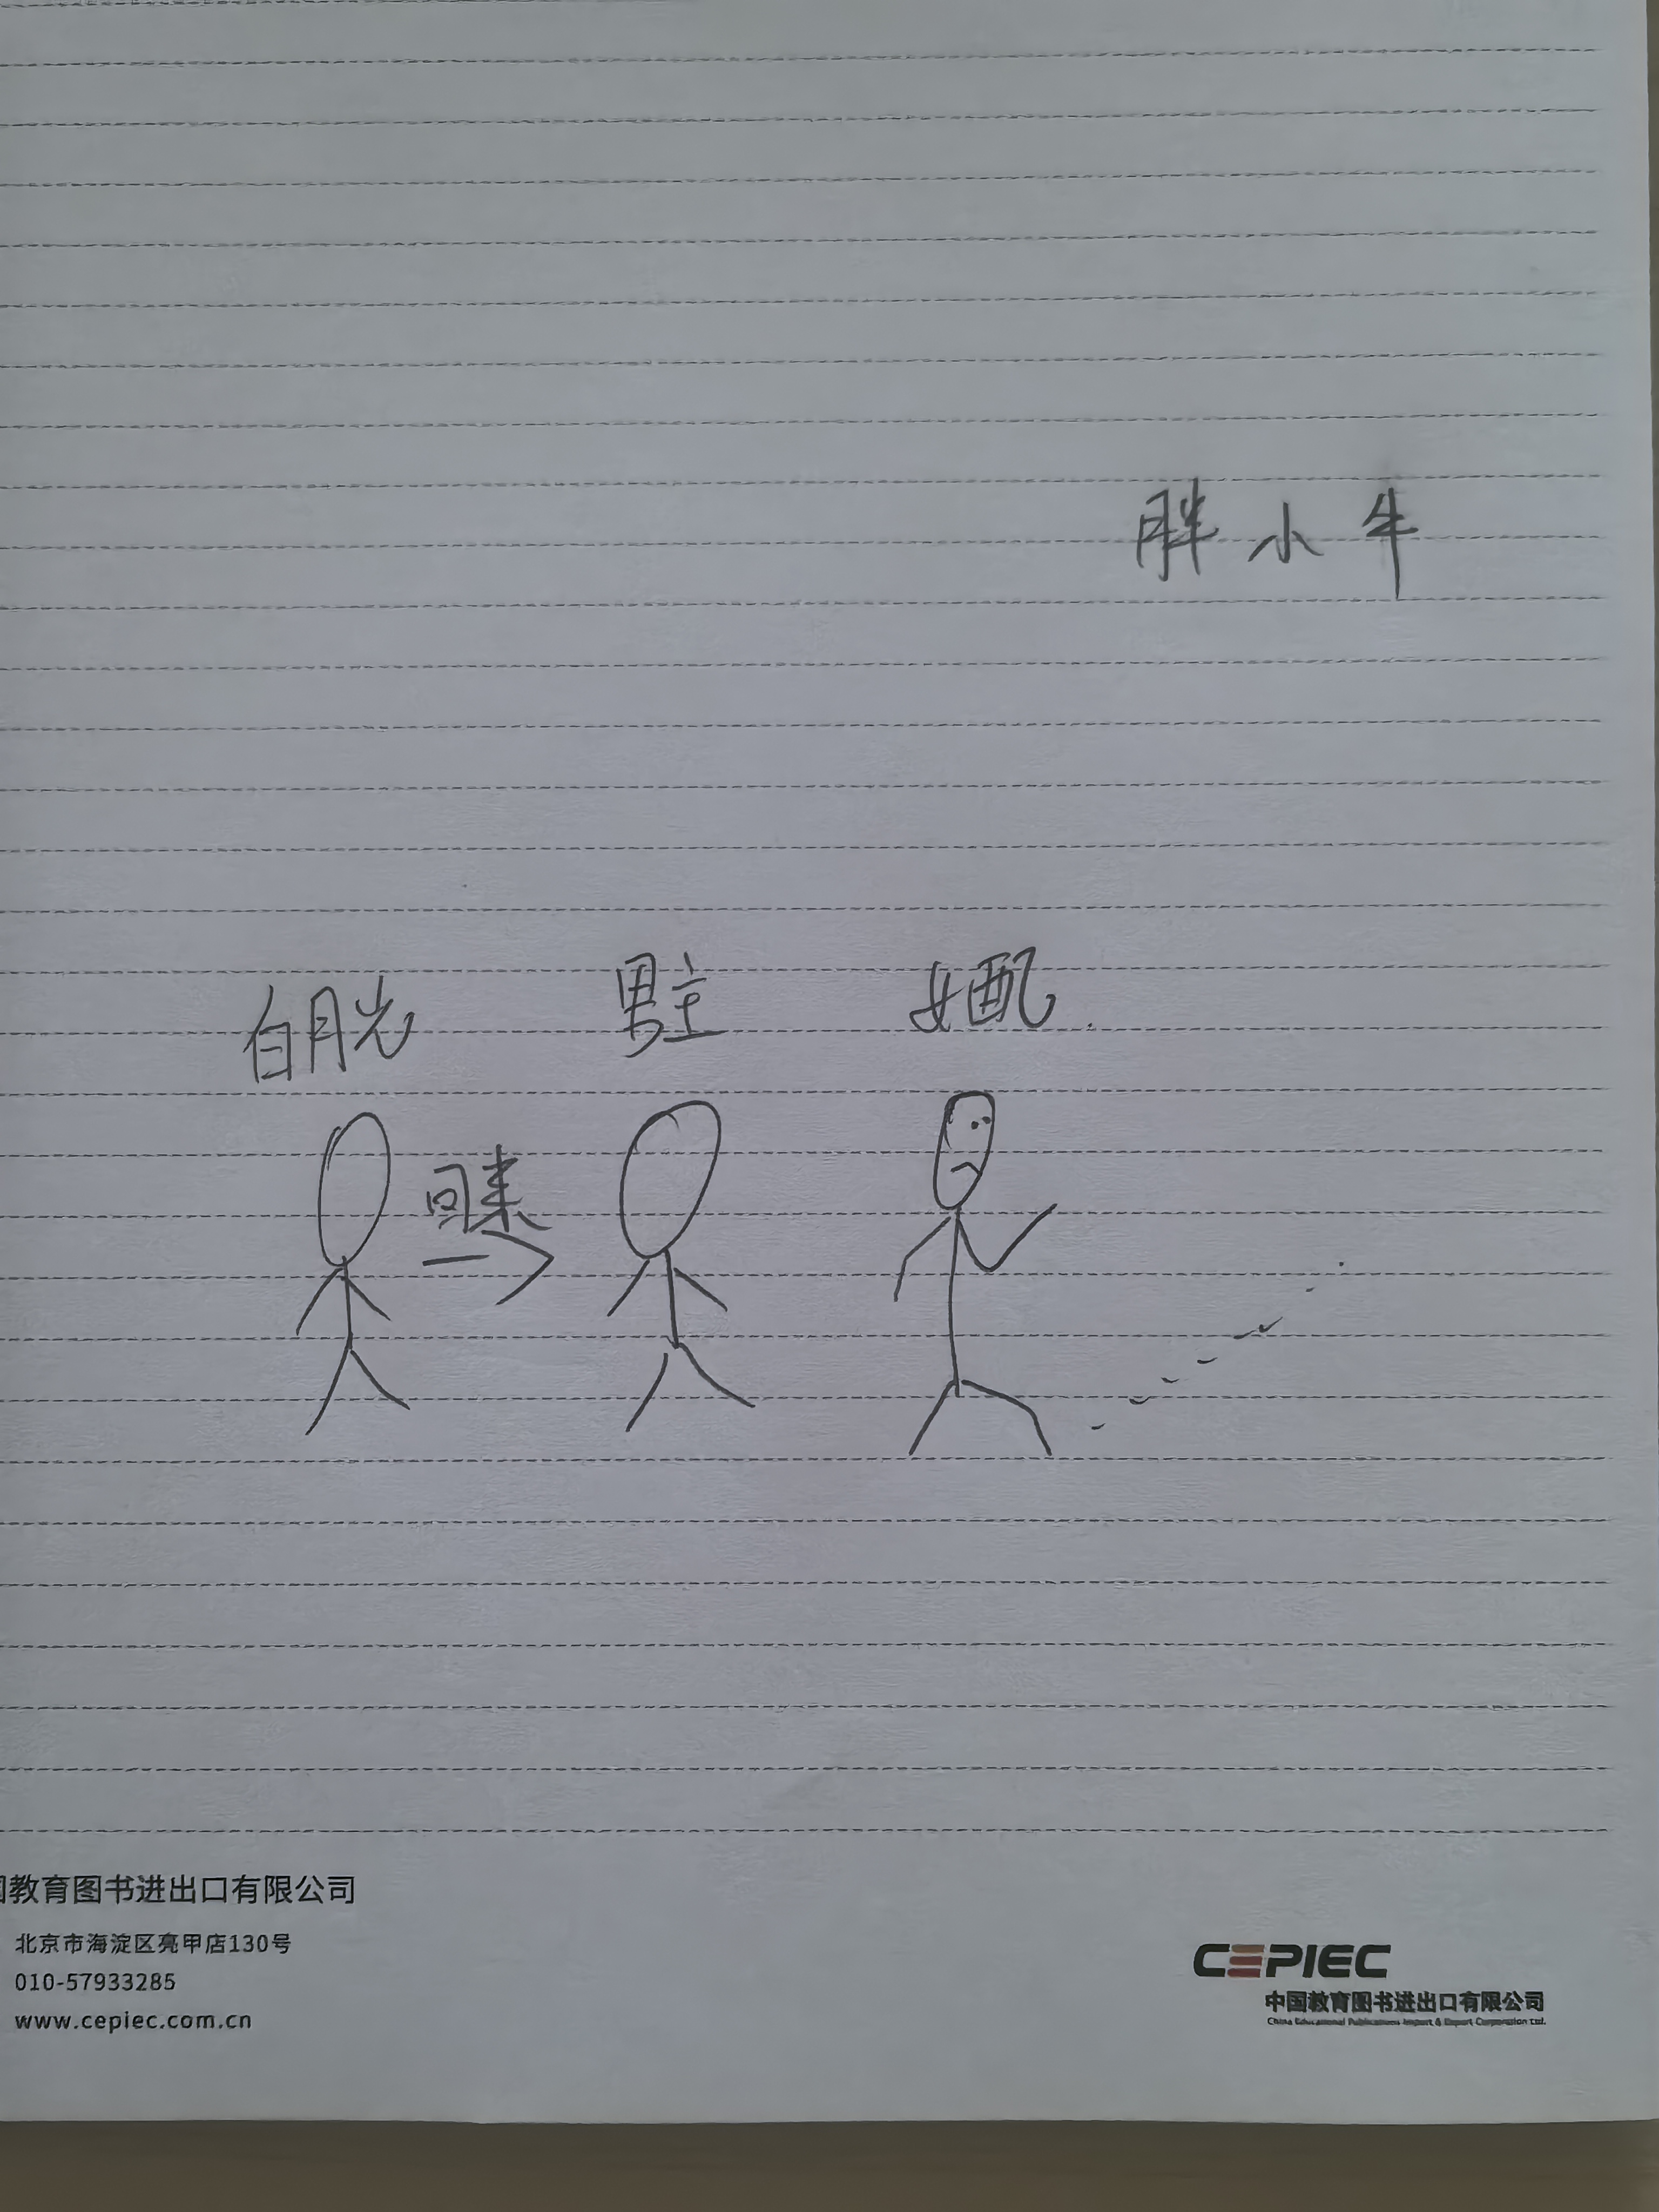 胖小牛
白月光 男主 女配
回来
国教育图书进出口有限公司
北京市海淀区亮甲店130号
010-57933285
www.cepiec.com.cn
CEPIEC
中国教育图书进出口有限公司
China Educational Publications Import & Export Corporation Ltd.